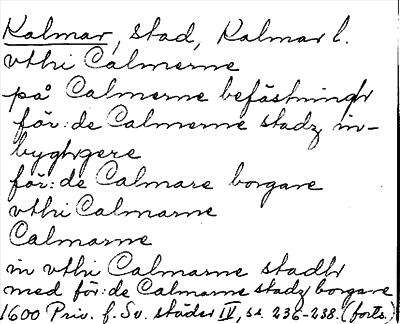 Kalmar, stad, Kalmar l.
vthi Calmerne
på Calmerne befästningh
för:de Calmerne stadz in-
byghgere
för:de Calmare borgare
vthi Calmarne
Calmarne
in vthi Calmarne stadh
med för:de Calmarne stadz borgare
1600 Priv. f. Sv. städer IV, s. 236-238. (forts.)